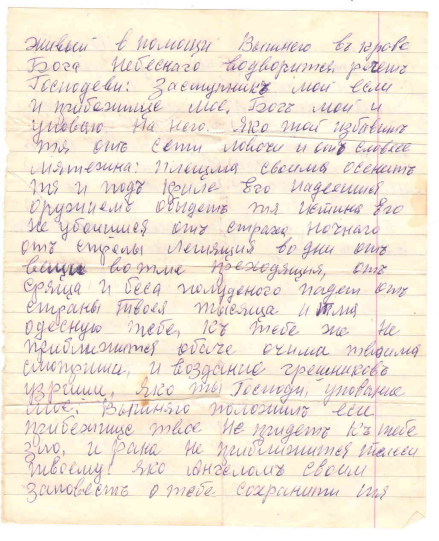 живый в помощи Вышнего въ крове
Бога Небеснаго водворится речетъ
Господеви: Заступникъ мой если
и прибежище мое, Богъ мой и
уповаю На него. Яко той избавитъ
тя отъ сети ловчи и отъ словесе
мятежна: плещма своима осенитъ
тя и подъ криле Его Надеешися
оружиемъ обыдетъ тя истина Его
Не убоишися отъ страха ночнаго
отъ стрелы летящия во дни отъ
вещи во тме преходящия, отъ
сряща и беса полуденого падет отъ
страны твоея тысяща и тма
одесную тебе, къ тебе же не
приближится обаче очима твоима
смотриши, и воздание грешниковъ
узриши, Яко ты Господи, упование
мое: Вышняго положилъ еси
прибежище твое Не придетъ къ тебе
зло, и рана не приближится телеси
твоему яко ангеломъ своим
заповесть о тебе сохранити тя